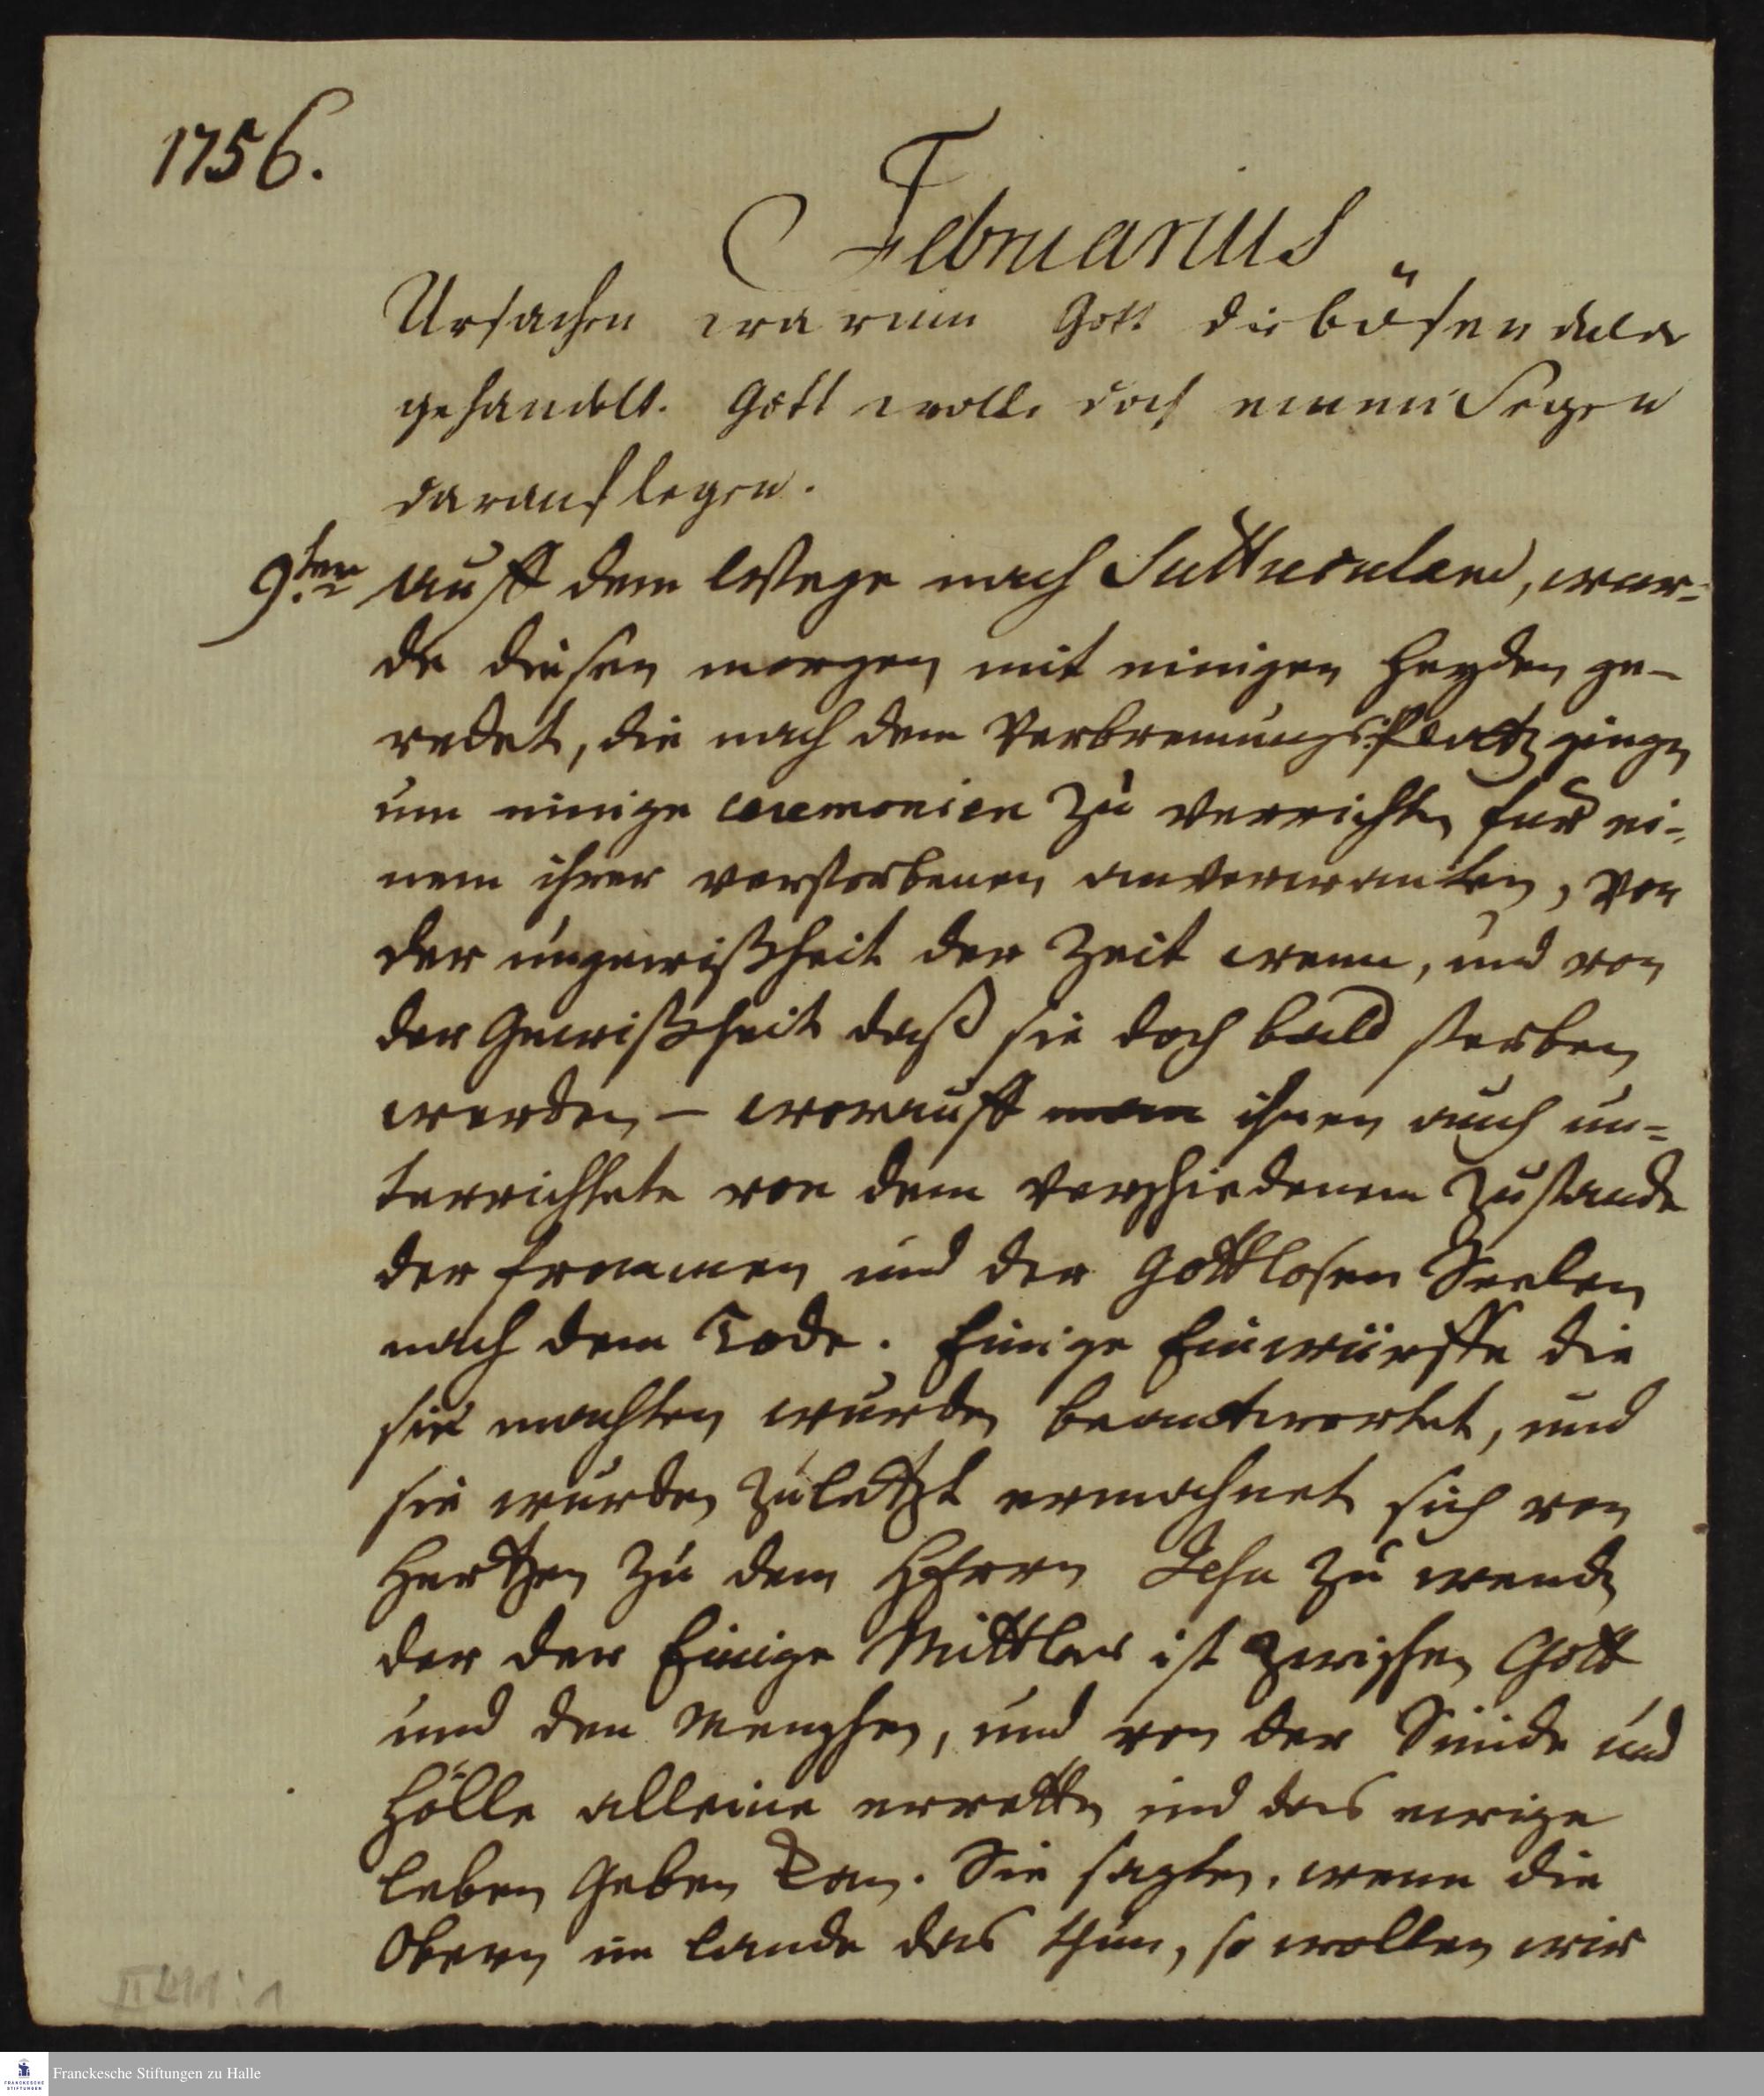 1756.
Februarius
Ursachen warum Gott die bösen
gehandelt. Gott wolle doch einen Segen
darauf legen.
9.ten Auff dem Wege nach Suttuculam, wur-
de diesen morgen mit einigen Heyden ge-
redet, die nach dem Verbrennungs-Platz gingen
um einige ceremonien zu verrichten für ei-
nem ihrer verstorbenen anverwanten, von
der ungewißheit der Zeit wenn, und von
der Gewißheit daß sie doch bald sterben
werden – worauff man ihnen auch un-
terrichtete von dem verschiedenem Zustande
der frommen und der Gottlosen Seelen
nach dem Tode. Einige Einwürffe die
sie machten wurden beantwortet, und
sie wurden zuletzt ermahnet sich von
Hertzen zu dem HErrn Jesu zu wenden
der der Einige Mittler ist zwischen Gott
und den Menschen, und von der Sünde und
Hölle alleine erretten und das ewige
Leben Geben kan. Sie sagten, wenn die
Obern im Lande das thun, so wollen wir
Franckesche Stiftungen zu Halle
FRANCKESCHE
STIFTUNGEN